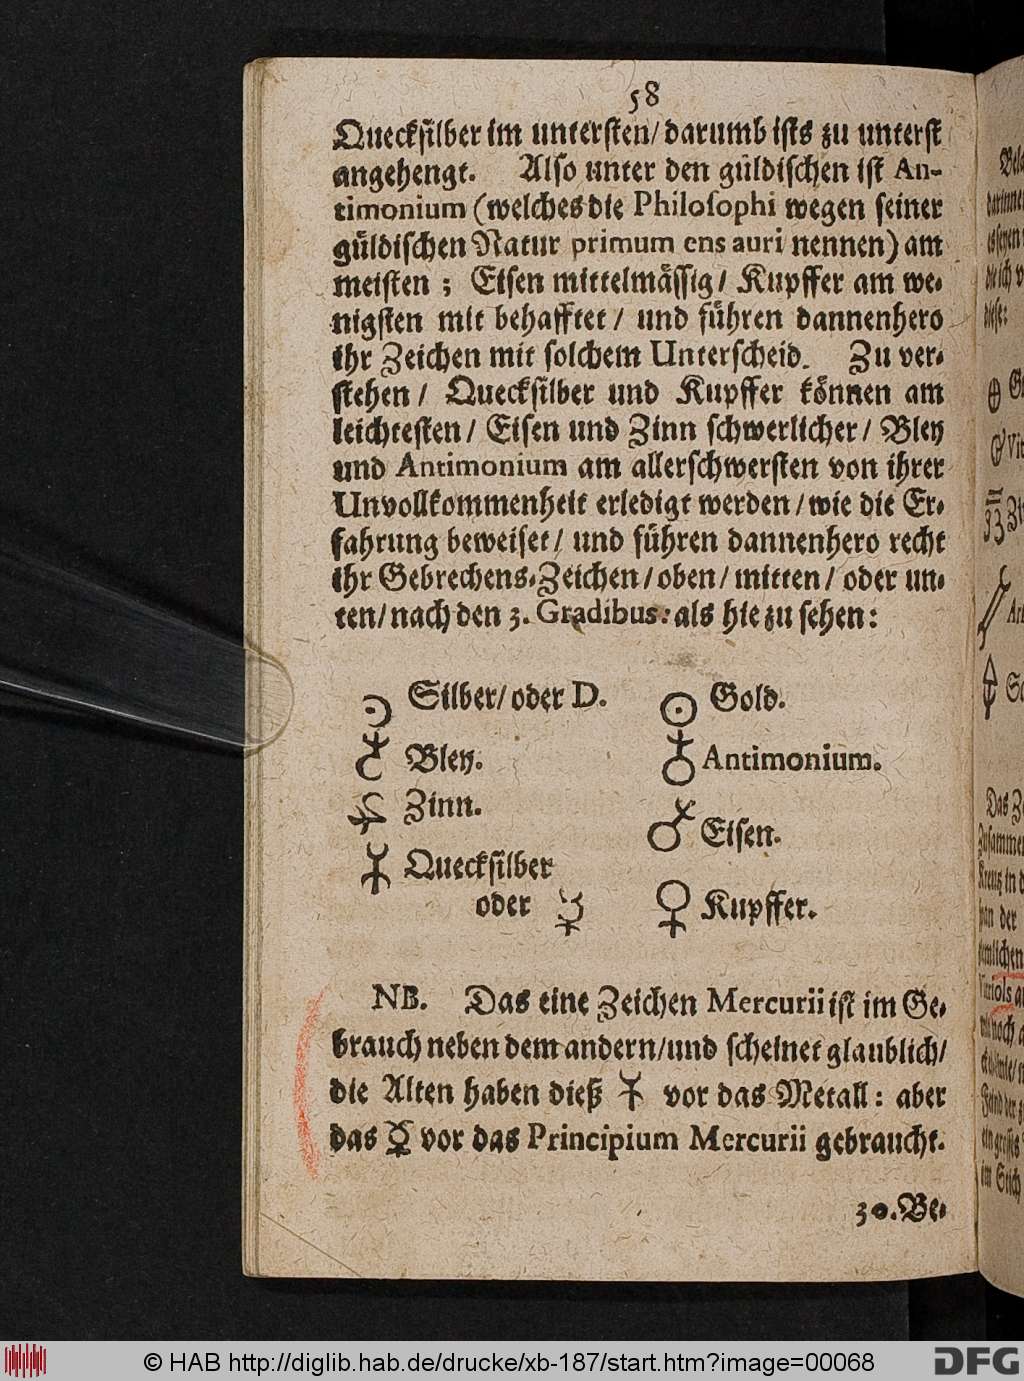 58
Quecksilber im untersten/ darumb ists zu unterst
angehengt. Also unter den güldischen ist An-
timonium (welches die Philosophi wegen seiner
güldischen Natur primum ens auri nennen) am
meisten; Eisen mittelmässig/ Kupffer am we-
nigsten mit behafftet/ und führen dannenhero
ihr Zeichen mit solchem Unterscheid. Zu ver-
stehen/ Quecksilber und Kupffer können am
leichtesten/ Eisen und Zinn schwerlicher/ Bley
und Antimonium am allerschwersten von ihrer
Unvollkommenheit erledigt werden/ wie die Er-
fahrung beweiset/ und führen dannenhero recht
ihr Gebrechens-Zeichen/ oben/ mitten/ oder un-
ten/ nach den 3. Gradibus: als hie zu sehen:
Silber/ oder D.
♄ Bley.
Zinn.
Quecksilber
oder ☿
☉ Gold.
♁ Antimonium.
♂ Eisen.
♀ Kupffer.
NB. Das eine Zeichen Mercurii ist im Ge-
brauch neben dem andern/ und scheinet glaublich/
die Alten haben dieß vor das Metall: aber
das ☿ vor das Principium Mercurii gebraucht.
30. Be-
© HAB http://diglib.hab.de/drucke/xb-187/start.htm?image=00068
DFG